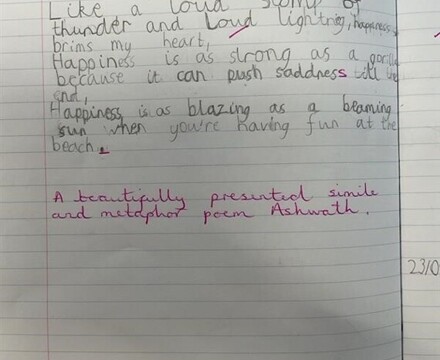 Like a loud stormy of
thunder and loud lightning, happiness
brims my heart,
Happiness is as strong as a gorilla
because it can push saddness till the
end,
Happiness is as blazing as a beaming
sun when you're having fun at the
beach.
A beautifully presented simile
and metaphor poem Ashwath.
23/0